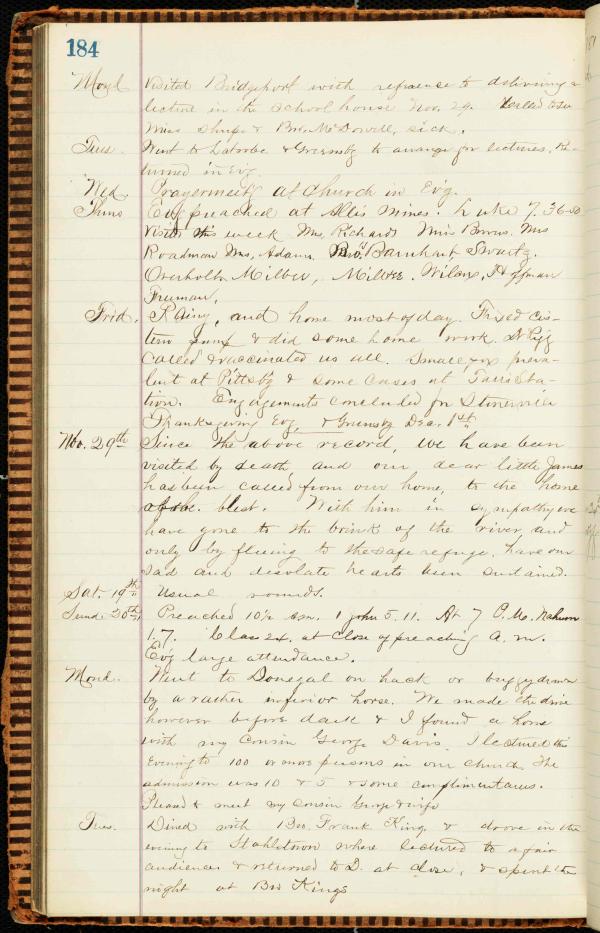 184
Mond. Visited Bridgeport with reference to delivering a
lecture in the school house Nov. 29. Called to see
Miss & Bro. McDowell, sick.
Tues. Went to Latrobe & to arrange for lectures. Re-
turned in Evg.
Wed. Prayermeetg at Church in Ev'g.
Thurs Evg preached at Mines. Luke 7. 36-50
Visits this week Mrs. Richards Miss Mrs
Roadman Mrs. Adams. Bro's Barnhart, Swartz.
Overholt, Milber, Wilcox, Hoffman
Truman,
Frid. Rainy, and home most of day. Fixed cis-
tern pump & did some home work. Dr
called & vaccinated us all. Small pox preva-
lent at Pittsb'g & some cases at Sta-
tion. Engagements concluded for Stonerville
Thanksgiving Evg, & Dec. 1st.
Nov. 29th Since the above record, we have been
visited by death, and our dear little James
has been called from our home, to the home
of the blest. With him in sympathy we
have gone to the brink of the river, and
only by fleeing to the safe refuge, have our
sad and desolate hearts been sustained.
Sat. 19th Usual rounds.
Sund. 20th, Preached 10½ a.m. 1 John 5. 11. At 7 P.M. Nahum
1.7. Class at close of preaching a. m.
Ev'g large attendance.
Mond. Went to Donegal on hack or buggy drawn
by a rather inferior horse. We made the drive
however before dark & I found a home
with my cousin George Davis. I lectured this
Evening to 100 or more persons in our church. The
admission was 10 & 5 & some complimentaries.
Pleased to meet my cousin George & wife
Tues. Dined with Bro. Frank King. & drove in the
evening to Stahlstown where lectured to a fair
audience & returned to D. at close, & spent the
night at Bro Kings